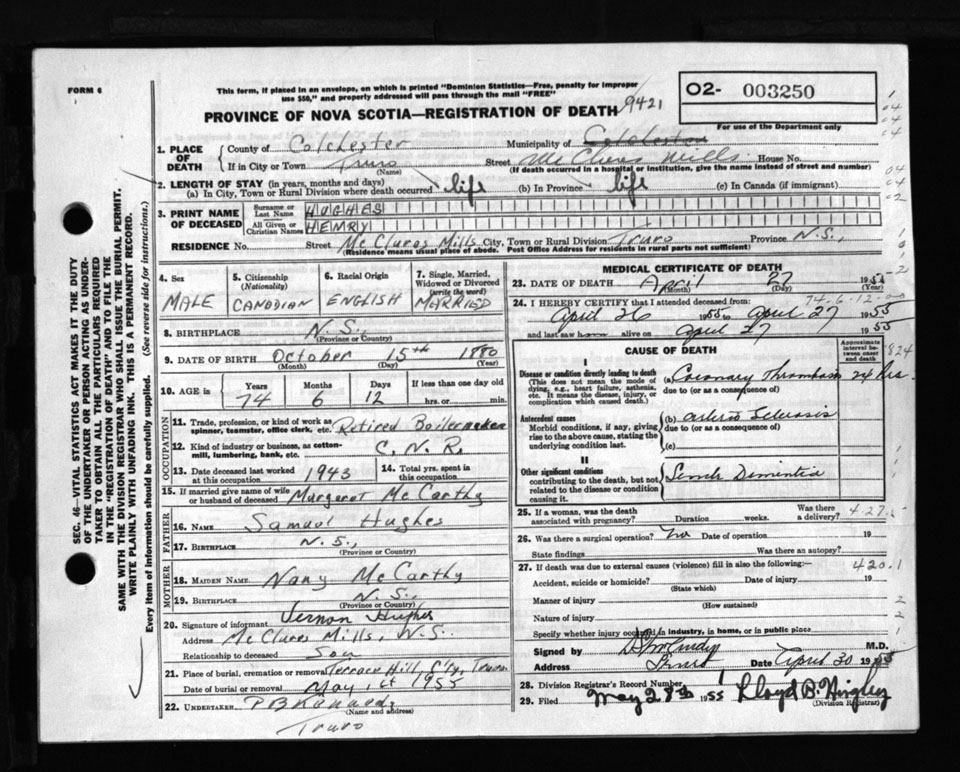 FORM 6
This form, if placed in an envelope, on which is printed "Dominion Statistics—Free, penalty for improper
use $50," and properly addressed will pass through the mail "FREE"
O2- 003250
PROVINCE OF NOVA SCOTIA—REGISTRATION OF DEATH 9421
For use of the Department only
1. PLACE OF DEATH
County of Colchester Municipality of Colchester
If in City or Town Truro Street McClures Mills House No.
(Name) (If death occurred in a hospital or institution, give the name instead of street and number)
2. LENGTH OF STAY (in years, months and days)
(a) In City, Town or Rural Division where death occurred life (b) In Province life (c) In Canada (if immigrant)
3. PRINT NAME OF DECEASED
Surname or Last Name HUGHES
All Given or Christian Names HENRY
RESIDENCE No. Street McClures Mills City, Town or Rural Division Truro Province N.S.,
(Residence means usual place of abode. Post Office Address for residents in rural parts not sufficient)
4. Sex MALE
5. Citizenship (Nationality) CANADIAN
6. Racial Origin ENGLISH
7. Single, Married, Widowed or Divorced (write the word) MARRIED
8. BIRTHPLACE N.S.,
(Province or Country)
9. DATE OF BIRTH October 15th 1880
(Month) (Day) (Year)
10. AGE in Years 74 Months 6 Days 12 If less than one day old hrs. or min.
OCCUPATION
11. Trade, profession, or kind of work as spinner, teamster, office clerk, etc. Retired Boilermaker
12. Kind of industry or business, as cotton-mill, lumbering, bank, etc. C.N.R.
13. Date deceased last worked at this occupation 1943
14. Total yrs. spent in this occupation
15. If married give name of wife or husband of deceased Margaret McCarthy
FATHER
16. NAME Samuel Hughes
17. BIRTHPLACE N.S.,
(Province or Country)
MOTHER
18. MAIDEN NAME Nany McCarthy
19. BIRTHPLACE N.S.,
(Province or Country)
20. Signature of informant Vernon Hughes
Address McClures Mills, N.S.
Relationship to deceased Son
21. Place of burial, cremation or removal Terrace Hill C'ty, Truro
Date of burial or removal May 1st 1955
22. UNDERTAKER
(Name and address)
Truro
MEDICAL CERTIFICATE OF DEATH
23. DATE OF DEATH April 27 1955
(Month) (Day)
74-6-12
24. I HEREBY CERTIFY that I attended deceased from
April 26 1955 to April 27 1955
and last saw h alive on April 27 1955
CAUSE OF DEATH
Approximate interval between onset and death
824
I
Disease or condition directly leading to death (a) Coronary Thrombosis 24 hrs
(This does not mean the mode of dying, e.g., heart failure, asthenia, etc. It means the disease, injury, or complication which caused death.)
due to (or as a consequence of)
Antecedent causes (b) arterio Sclerosis
Morbid conditions, if any, giving rise to the above cause, stating the underlying condition last.
due to (or as a consequence of)
(c)
II
Other significant conditions Senile Dementia
contributing to the death, but not related to the disease or condition causing it.
25. If a woman, was the death associated with pregnancy? Duration weeks. Was there a delivery?
4-27
26. Was there a surgical operation? no Date of operation 19
State findings Was there an autopsy?
27. If death was due to external causes (violence) fill in also the following: 420.1
Accident, suicide or homicide? Date of injury 19
(State which)
Manner of injury
(How sustained)
Nature of injury
Specify whether injury occurred in industry, in home, or in public place
Signed by M.D.
Address Truro Date April 30 1955
28. Division Registrar's Record Number
29. Filed May 28th 1955 Lloyd B. Hingley
(Division Registrar)
SEC. 46—VITAL STATISTICS ACT MAKES IT THE DUTY
OF THE UNDERTAKER OR PERSON ACTING AS UNDER-
TAKER TO OBTAIN ALL THE PARTICULARS REQUIRED
IN THE "REGISTRATION OF DEATH" AND TO FILE THE
SAME WITH THE DIVISION REGISTRAR WHO SHALL ISSUE THE BURIAL PERMIT.
WRITE PLAINLY WITH UNFADING INK. THIS IS A PERMANENT RECORD.
Every item of information should be carefully supplied. (See reverse side for instructions.)